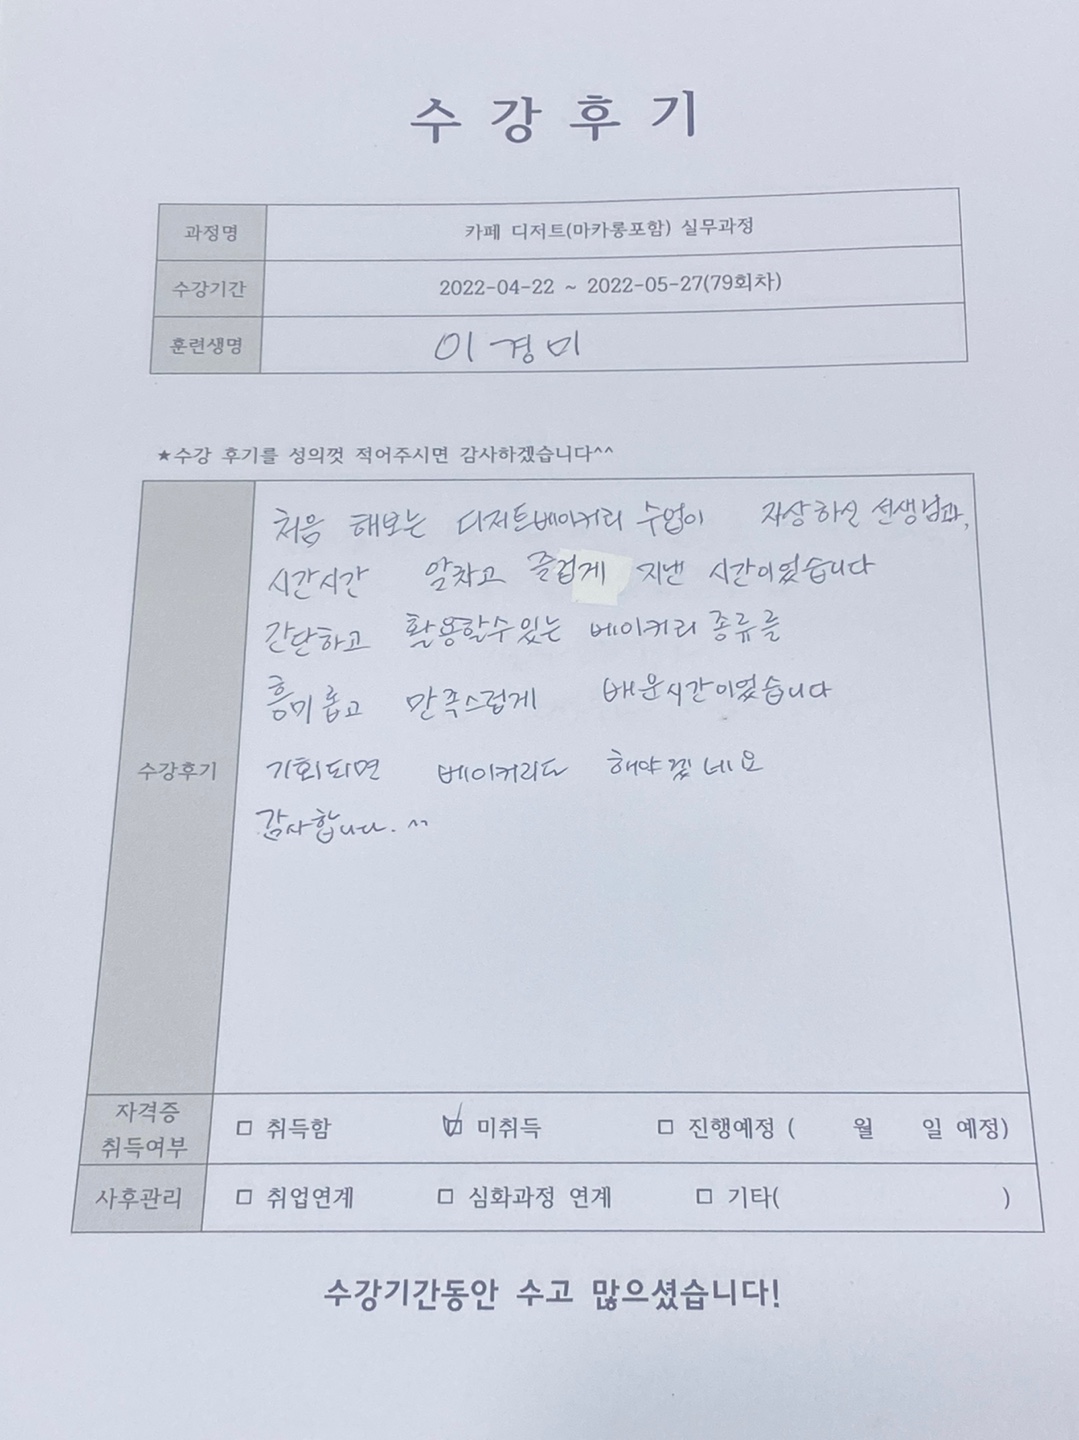 수강후기
과정명 카페 디저트(마카롱포함) 실무과정
수강기간 2022-04-22 ~ 2022-05-27(79회차)
훈련생명 이경미
★수강 후기를 성의껏 적어주시면 감사하겠습니다^^
처음 해보는 디저트베이커리 수업이 자상하신 선생님과,
시간시간 알차고 즐겁게 지낸 시간이었습니다
간단하고 활용할수있는 베이커리 종류를
흥미롭고 만족스럽게 배운시간이였습니다
수강후기
기회되면 베이커리도 해야겠네요
감사합니다. ^^
자격증
취득여부
□ 취득함 ☑ 미취득 □ 진행예정 ( 월 일 예정)
사후관리 □ 취업연계 □ 심화과정 연계 □ 기타( )
수강기간동안 수고 많으셨습니다!